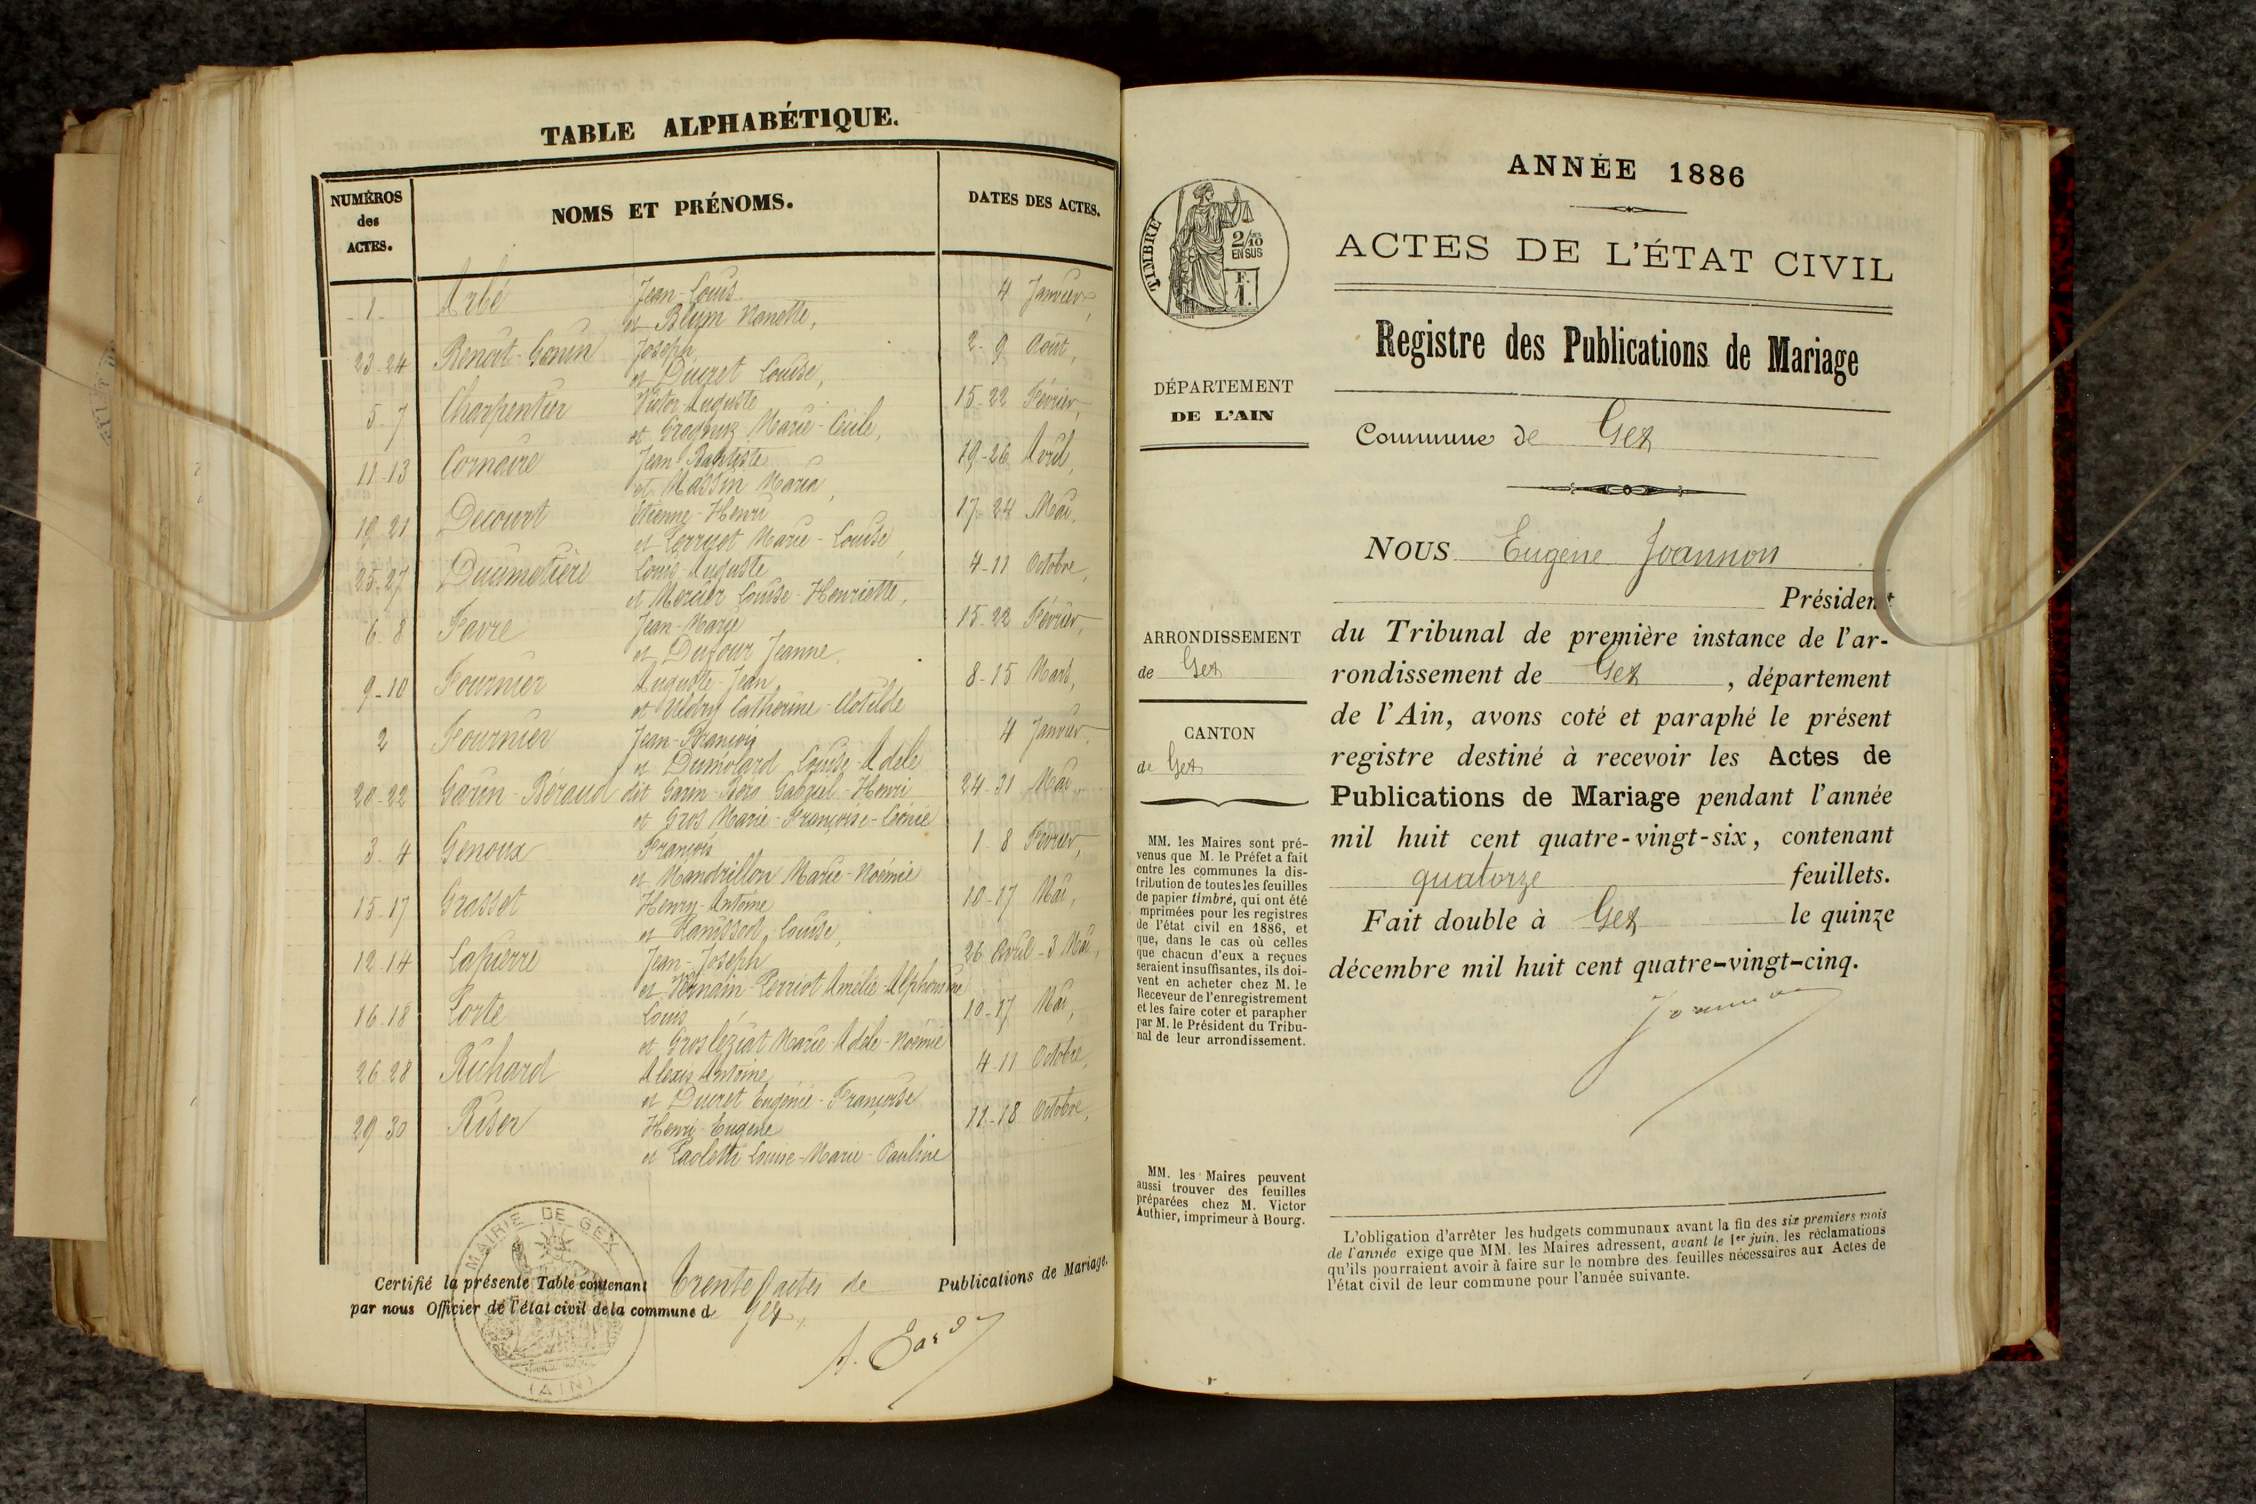 TABLE ALPHABÉTIQUE.
NUMÉROS
des
ACTES.
NOMS ET PRÉNOMS.
DATES DES ACTES.
- 1 - Arbé Jean-Louis 4 Janvier,
et Blum Nanette,
23-24 Benoit-Gonin Joseph, 2-9 Août,
et Ducret Louise,
5-7 Charpentier Victor Auguste 15-22 Février,
et Marie-Cécile,
11-13 Cornaire Jean Baptiste 19-26 Avril,
et Massin Maria,
19-21 Decourt Etienne-Henri 17-24 Mai,
et Perruet Marie-Louise,
25-27 Louis Auguste 4-11 Octobre,
et Mercier Louise-Henriette,
6-8 Favre Jean-Marie 15-22 Février,
et Dufour Jeanne,
9-10 Fournier Auguste-Jean 8-15 Mars,
et Catherine-Clotilde
2 Fournier Jean-François 4 Janvier,
et Dumolard Louise-Adèle
20-22 Garin-Béraud dit Garin-Bero Gabriel-Henri 24-31 Mai,
et Gros Marie-Françoise-Léonie
3-4 Genoux François 1-8 Février,
et Mandrillon Marie-Noémie
15-17 Grasset Henry-Antoine 10-17 Mai,
et Louise,
12-14 Lapierre Jean-Joseph 26 Avril-3 Mai,
et Perriot Amélie-Alphonsine
16-18 Porte Louis 10-17 Mai,
et Grosléziat Marie-Adèle-Noémie
26-28 Richard Alexis Antoine 4-11 Octobre,
et Ducret Eugénie-Françoise
29-30 Riser Henri-Eugène 11-18 Octobre,
et Paoletti Louise-Marie-Pauline
MAIRIE DE GEX
(AIN)
Certifié la présente Table contenant Trente actes de Publications de Mariage.
par nous Officier de l'état civil de la commune de Gex,
TIMBRE
2/10
EN SUS
F.
1.
DÉPARTEMENT
DE L'AIN
ARRONDISSEMENT
de Gex
CANTON
de Gex
MM. les Maires sont pré-
venus que M. le Préfet a fait
entre les communes la dis-
tribution de toutes les feuilles
de papier timbré, qui ont été
imprimées pour les registres
de l'état civil en 1886, et
que, dans le cas où celles
que chacun d'eux a reçues
seraient insuffisantes, ils doi-
vent en acheter chez M. le
Receveur de l'enregistrement
et les faire coter et parapher
par M. le Président du Tribu-
nal de leur arrondissement.
MM. les Maires peuvent
aussi trouver des feuilles
préparées chez M. Victor
Authier, imprimeur à Bourg.
ANNÉE 1886
ACTES DE L'ÉTAT CIVIL
Registre des Publications de Mariage
Commune de Gex
NOUS Eugène Joannon
Président
du Tribunal de première instance de l'ar-
rondissement de Gex, département
de l'Ain, avons coté et paraphé le présent
registre destiné à recevoir les Actes de
Publications de Mariage pendant l'année
mil huit cent quatre-vingt-six, contenant
quatorze feuillets.
Fait double à Gex le quinze
décembre mil huit cent quatre-vingt-cinq.
Joannon
L'obligation d'arrêter les budgets communaux avant la fin des six premiers mois
de l'année exige que MM. les Maires adressent, avant le 1er juin, les réclamations
qu'ils pourraient avoir à faire sur le nombre des feuilles nécessaires aux Actes de
l'état civil de leur commune pour l'année suivante.